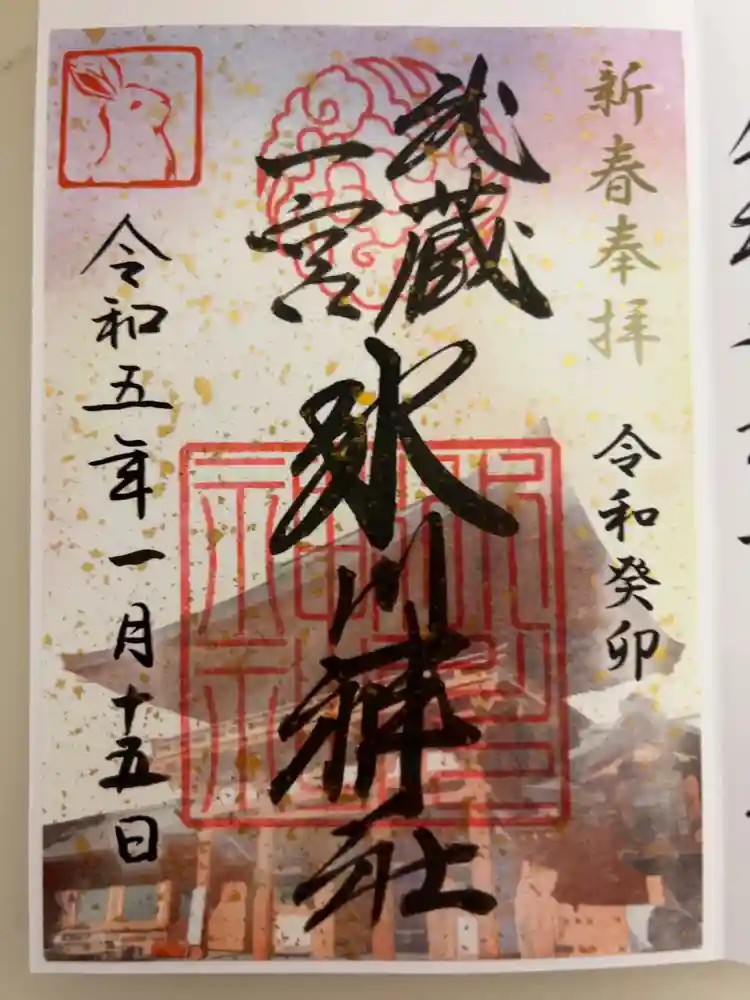 新春奉拝
令和癸卯
武蔵
一宮
氷川神社
令和五年一月十五日